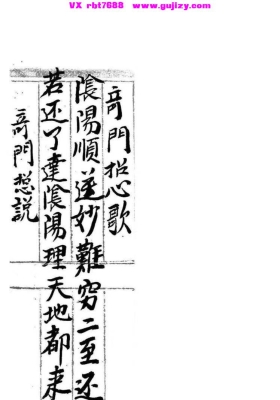 VX rbt7688 www.gujizy.com
奇門招心歌
陰陽順逆妙難窮二至还
若还了達陰陽理天地都来
奇門總説